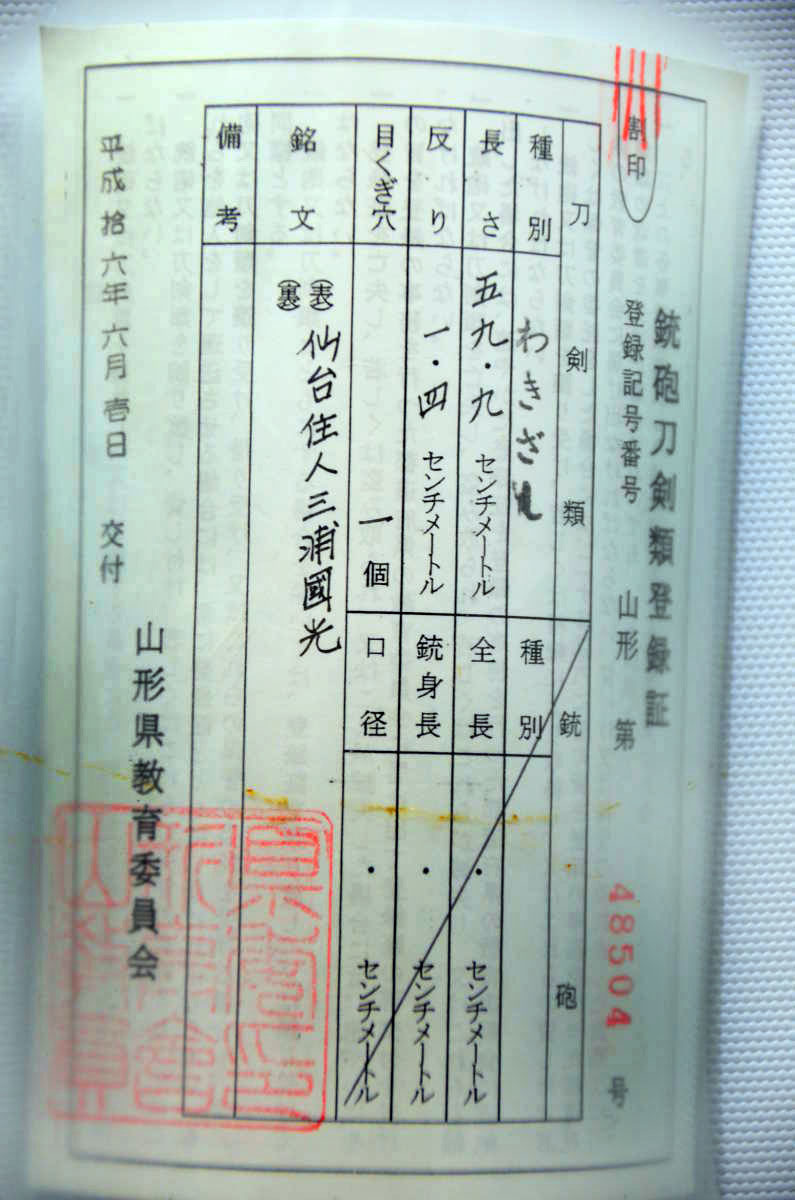 割印
銃砲刀剣類登録証
登録記号番号 山形 第 48504 号
刀剣類
種別 わきざし
長さ 五九・九 センチメートル
反り 一・四 センチメートル
目くぎ穴 一個
銘文
(表) 仙台住人三浦國光
(裏)
備考
銃砲
種別
全長 ・ センチメートル
銃身長 ・ センチメートル
口径 ・ センチメートル
平成拾六年六月壱日 交付
山形県教育委員会